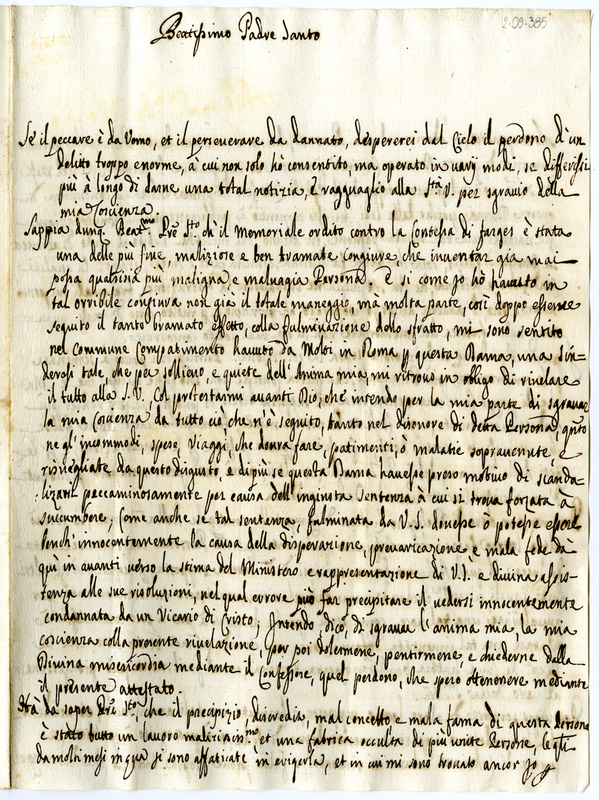 2-09-385
Beatissimo Padre Santo
Se il peccare è da Uomo, et il perseverare da dannato, despererei dal Cielo il perdono d'un
delitto troppo enorme, à cui non solo hò consentito, ma operato in varij modi, se differissi
più à longo di darne una total notizia, e ragguaglio alla Stà V. per sgravio della
mia Coscienza.
Sappia dunq. Beatmo Pre Sto ch'il Memoriale ordito contro la Contessa di farges è stata
una delle più fine, maliziose e ben tramate Congiure, che inventar già mai
possa qualsisia più maligna e malvagia Persona. E si come Jo hò havuto in
tal orribile congiura non già il totale maneggio, ma molta parte, così doppo esserne
seguito il tanto bramato effetto, colla fulminazione dello sfratto, mi sono sentito
nel Commune Compatimento havuto da Molti in Roma p questa Dama, una Sin=
deresi tale, che per sollievo, e quiete dell'Anima mia, mi ritrovo in obligo di rivelare
il tutto alla S.V. Col protestarmi avanti Dio, che intendo per la mia parte di sgravar
la mia Coscienza da tutto ciò che n'è seguito, tanto nel disonore di detta Persona, qnto
ne gl'incommodi, spese, Viaggi, che dovrà fare, patimenti, ò malatie sopravenute, e
risvegliate da questo disgusto, e di più se questa Dama havesse preso motivo di scanda=
:lizarsi peccaminosamente per causa dell'ingiusta sentenza à cui si trova forzata à
succumbere; Come anche se tal sentenza, fulminata da V.S. dovesse ò potesse essere
bench'innocentemente la causa della disperazione, prevaricazione e mala fede da
quì in avanti verso la stima del Ministero e rappresentazione di V.S. e divina assis=
tenza alle sue risoluzioni, nel qual errore può far precipitare il vedersi innocentemente
condannata da un Vicario di Cristo; Intendo dico, di sgravar l'anima mia, la mia
coscienza colla presente rivelazione, per poi dolermene, pentirmene, e chiederne dalla
Divina misericordia mediante il Confessore, quel perdono, che spero ottenere mediante
il presente attestato.
Hà da saper Pre Sto, che il precipizio, discredito, mal concetto e mala fama di questa Persona
è stato tutto un lavoro et una fabrica occulta di più unite Persone, le qli
da molti mesi in qua si sono affaticate in erigerla, et in cui mi sono trovato ancor Jo